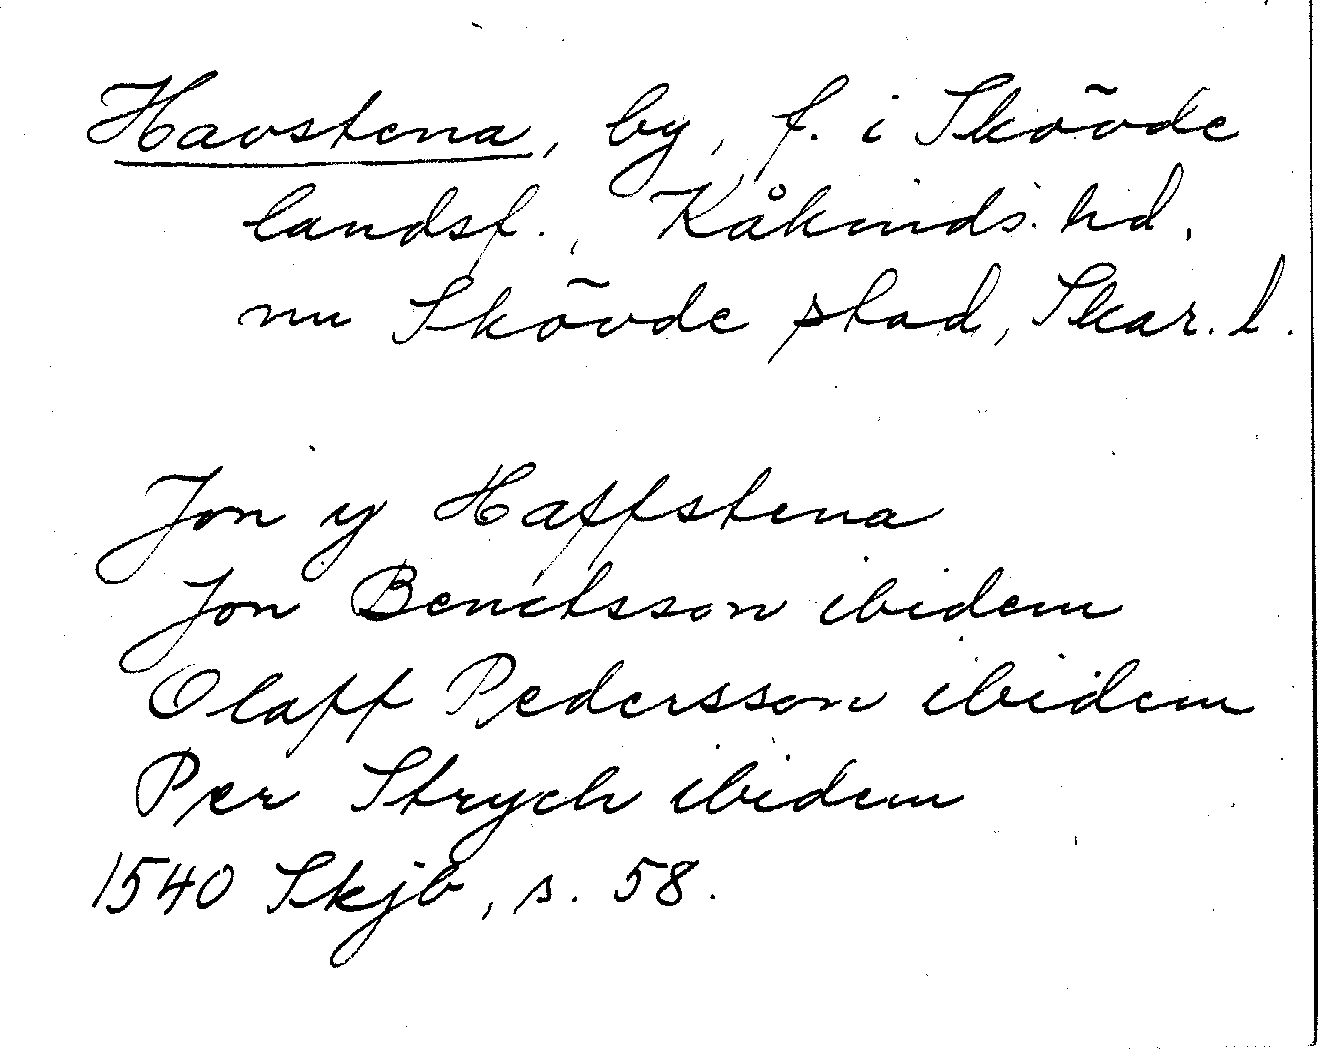 Havstena, by, f. i Skövde
landsf., Kåkinds hd,
nu Skövde stad, Skar. l.
Jon y Haffstena
Jon Benctsson ibidem
Olaff Pedersson ibidem
Per Strych ibidem
1540 Skjb, s. 58.